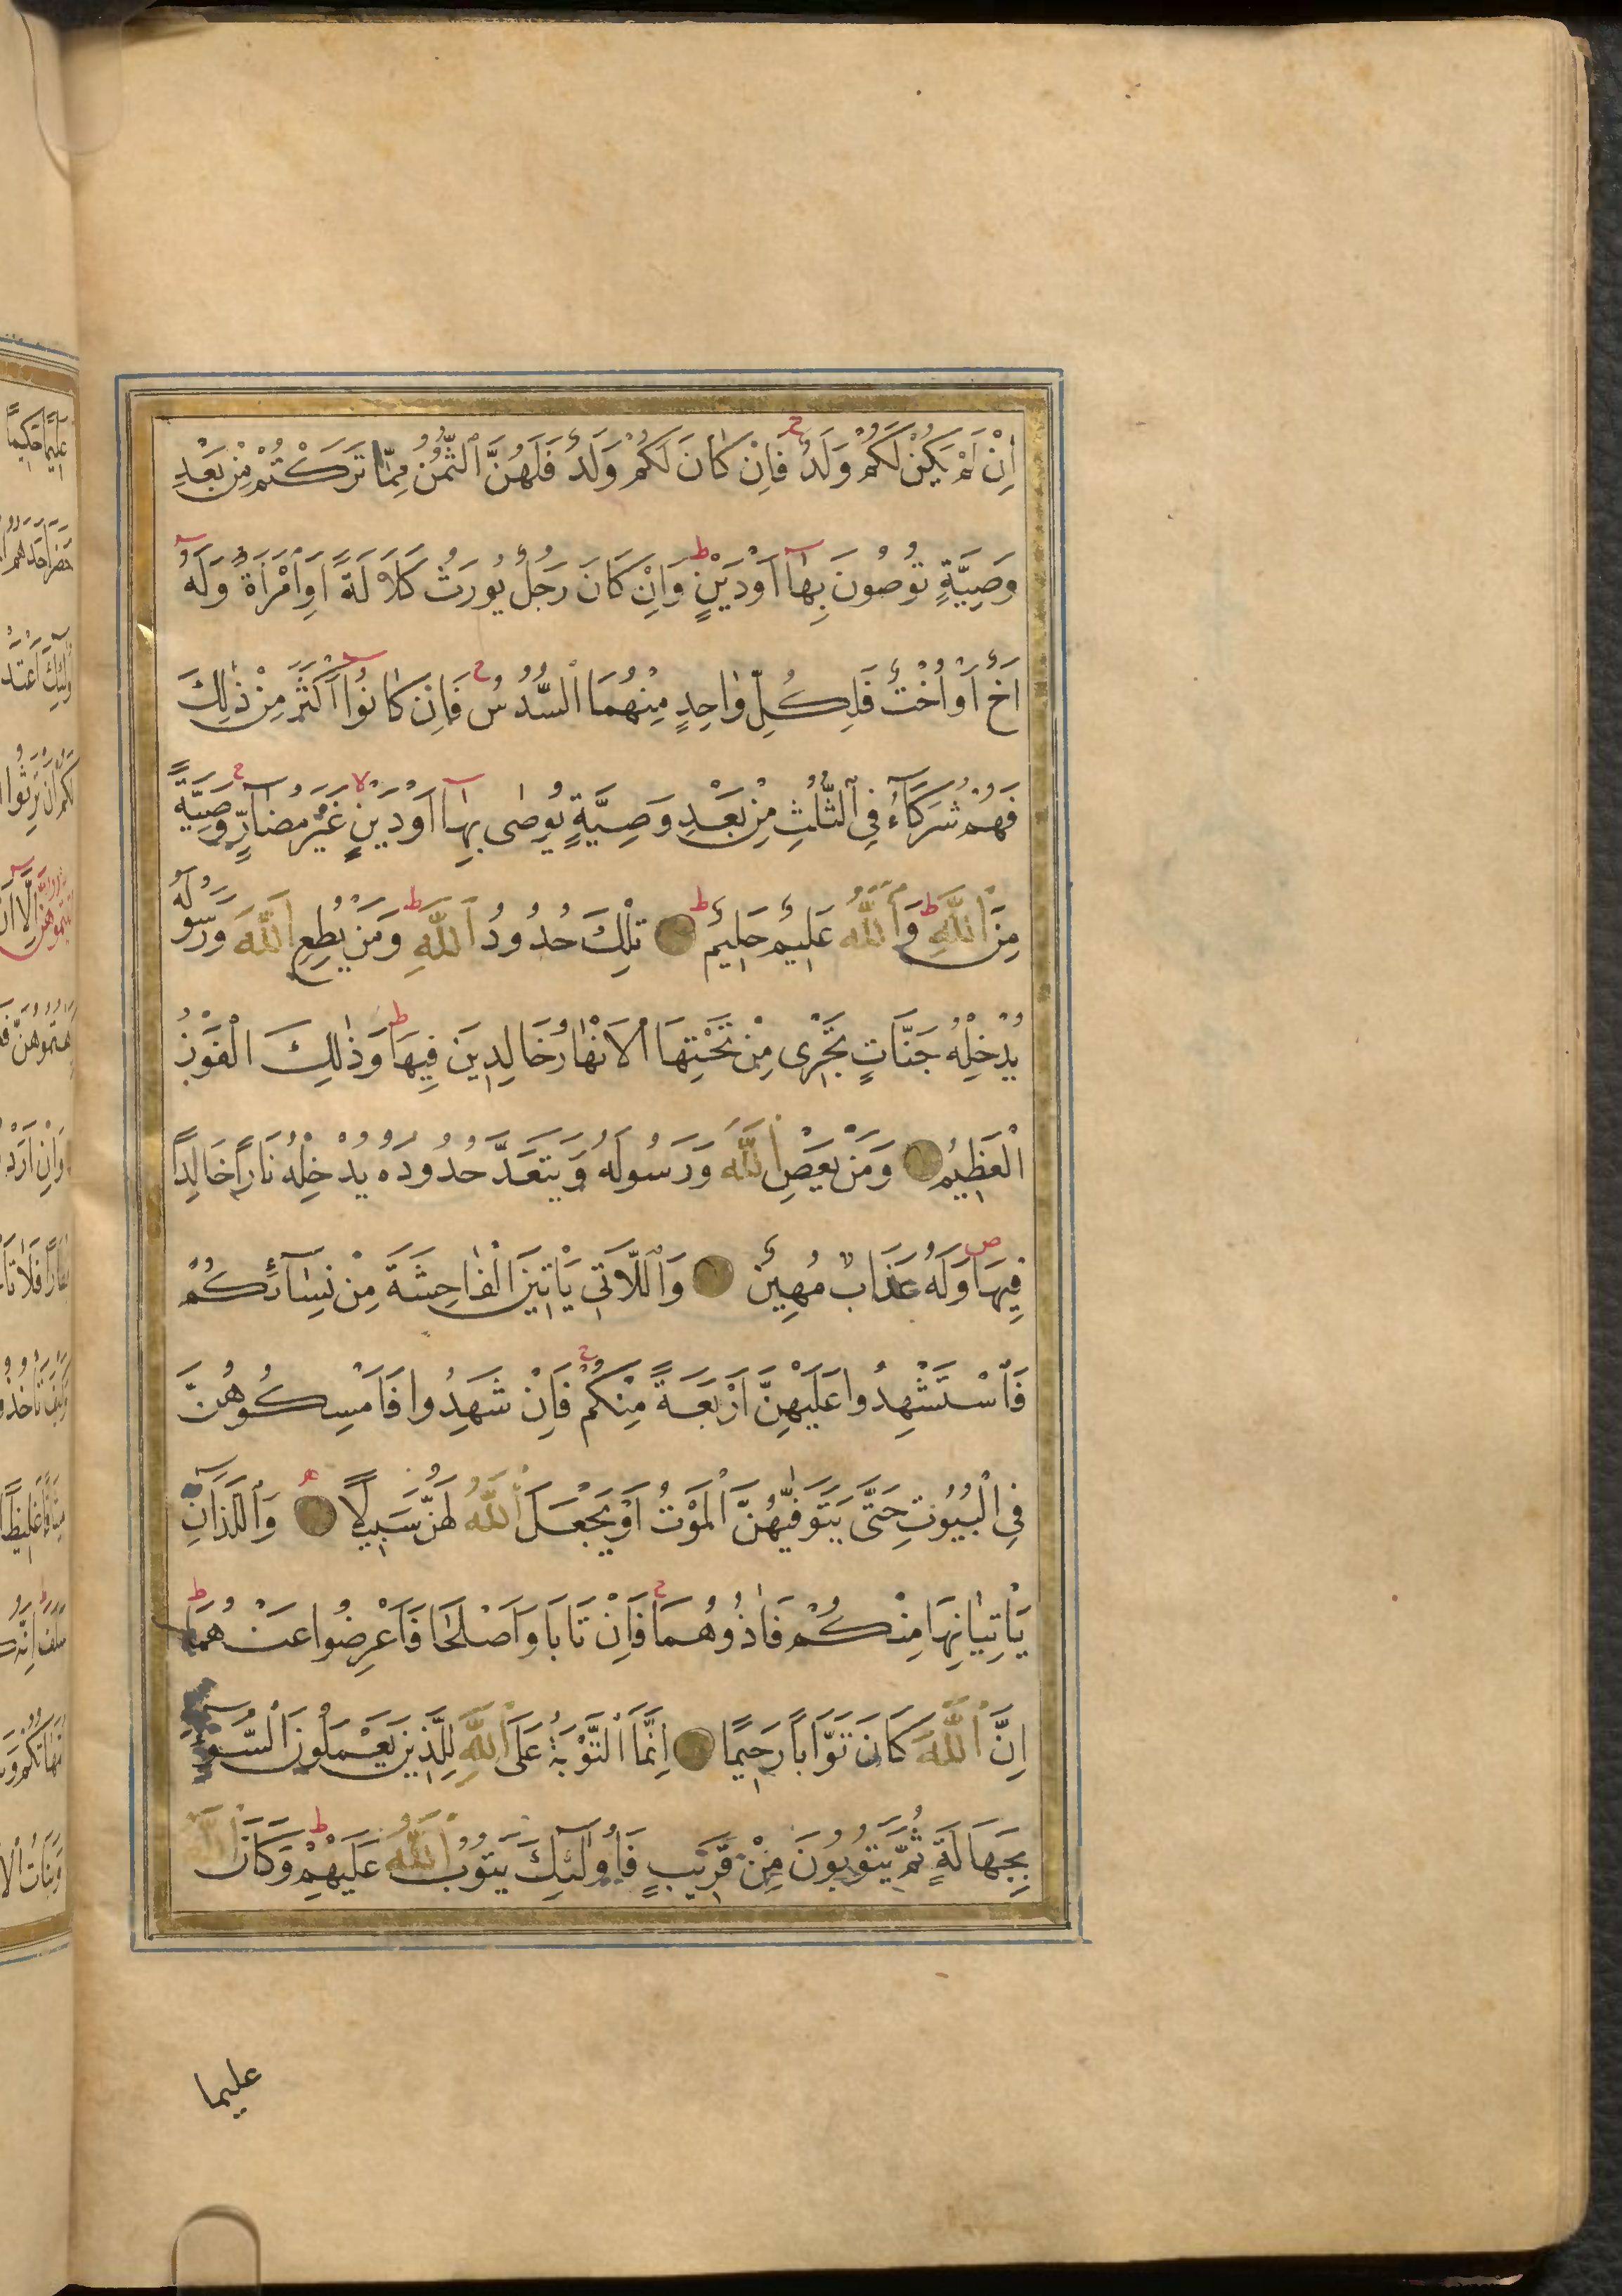 اِنْ لَمْ يَكُنْ لَكُمْ وَلَدٌ فَاِنْ كَانَ لَكُمْ وَلَدٌ فَلَهُنَّ الثُّمُنُ مِمَّا تَرَكْتُمْ مِنْ بَعْدِ
وَصِيَّةٍ تُوصُونَ بِهَآ اَوْ دَيْنٍ ط وَاِنْ كَانَ رَجُلٌ يُورَثُ كَلَالَةً اَوِ امْرَاَةٌ وَلَهُٓ
اَخٌ اَوْ اُخْتٌ فَلِكُلِّ وَاحِدٍ مِنْهُمَا السُّدُسُ ج فَاِنْ كَانُٓوا اَكْثَرَ مِنْ ذٰلِكَ
فَهُمْ شُرَكَآءُ فِي الثُّلُثِ مِنْ بَعْدِ وَصِيَّةٍ يُوصٰى بِهَآ اَوْ دَيْنٍ لا غَيْرَ مُضَآرٍّ ج وَصِيَّةً
مِنَ اللّٰهِ ط وَاللّٰهُ عَلِيمٌ حَلِيمٌ ط تِلْكَ حُدُودُ اللّٰهِ ط وَمَنْ يُطِعِ اللّٰهَ وَرَسُولَهُ
يُدْخِلْهُ جَنَّاتٍ تَجْرِى مِنْ تَحْتِهَا الْاَنْهَارُ خَالِدِينَ فِيهَا ط وَذٰلِكَ الْفَوْزُ
الْعَظِيمُ وَمَنْ يَعْصِ اللّٰهَ وَرَسُولَهُ وَيَتَعَدَّ حُدُودَهُ يُدْخِلْهُ نَارًا خَالِدًا
فِيهَا ص وَلَهُ عَذَابٌ مُهِينٌ وَاللَّاتِى يَاْتِينَ الْفَاحِشَةَ مِنْ نِسَآئِكُمْ
فَاسْتَشْهِدُوا عَلَيْهِنَّ اَرْبَعَةً مِنْكُمْ ج فَاِنْ شَهِدُوا فَاَمْسِكُوهُنَّ
فِي الْبُيُوتِ حَتَّى يَتَوَفّٰيهُنَّ الْمَوْتُ اَوْ يَجْعَلَ اللّٰهُ لَهُنَّ سَبِيلًا وَاللَّذَانِ
يَاْتِيَانِهَا مِنْكُمْ فَاٰذُوهُمَا ج فَاِنْ تَابَا وَاَصْلَحَا فَاَعْرِضُوا عَنْهُمَا ط
اِنَّ اللّٰهَ كَانَ تَوَّابًا رَحِيمًا اِنَّمَا التَّوْبَةُ عَلَى اللّٰهِ لِلَّذِينَ يَعْمَلُونَ السُّوٓءَ
بِجَهَالَةٍ ثُمَّ يَتُوبُونَ مِنْ قَرِيبٍ فَاُولٰٓئِكَ يَتُوبُ اللّٰهُ عَلَيْهِمْ ط وَكَانَ اللّٰهُ
عليما